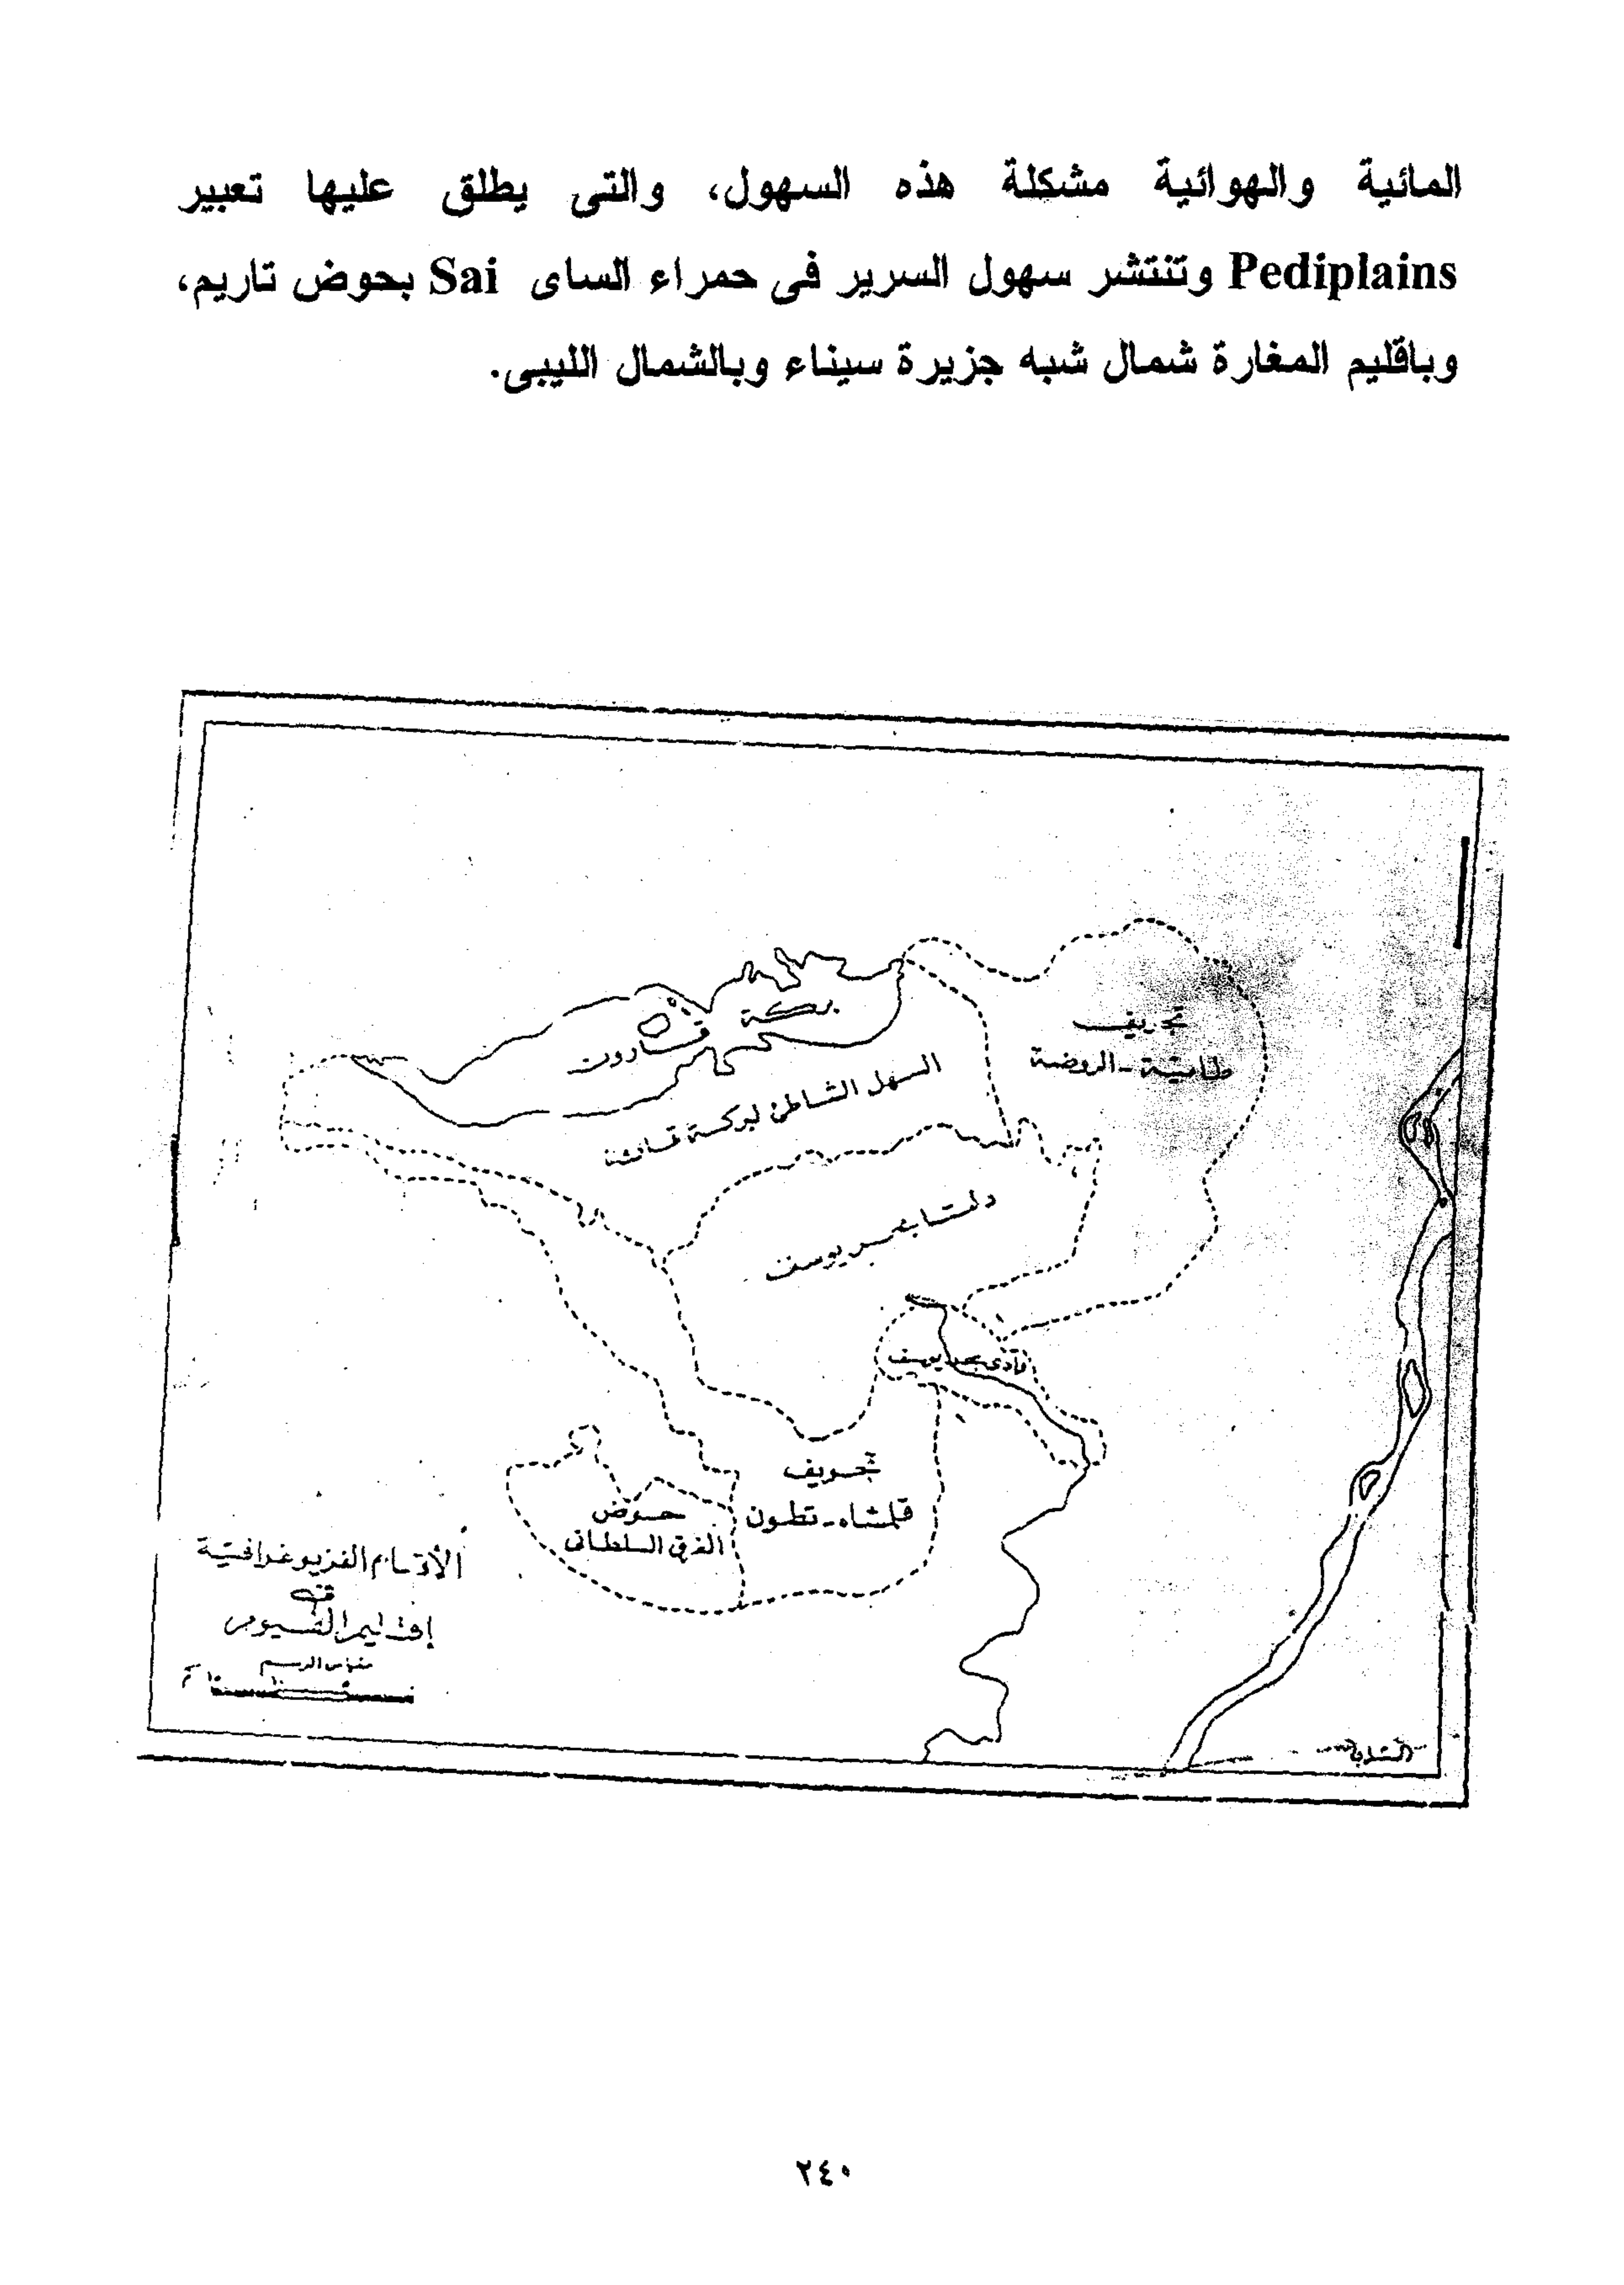 المائية والهوائية مشكلة هذه السهول، والتى يطلق عليها تعبير
Pediplains وتنتشر سهول السرير فى حمراء الساى Sai بحوض تاريم،
وباقليم المغارة شمال شبه جزيرة سيناء وبالشمال الليبى.
تجويف
طامية - الروضة
بركة قارون
السهل الشاطئ لبركة قارون
دلتا بحر يوسف
وادى بحر يوسف
تجويف
قلمشاه - تطون
حوض
الغرق السلطانى
الأقسام الفزيوغرافية
فى
إقليم الفيوم
مقياس الرسم
٢٤٠